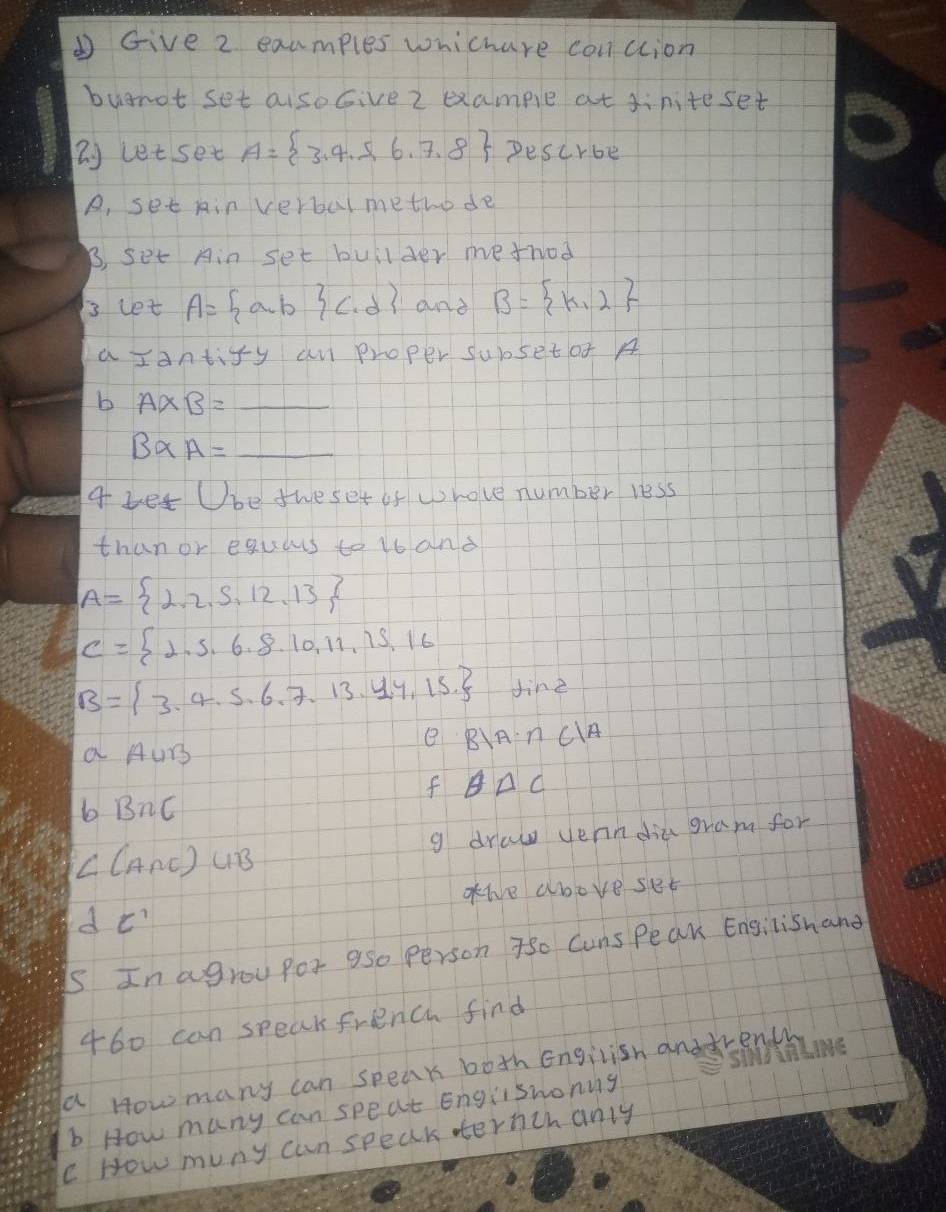 1) Give 2 eaumples whichare conlction
butnot set also Give 2 example at finite set
2) Let set A = { 3.4.5 6.7.8 } Descrbe
A, set Ain verbal methode
B, set Ain set builder method
3 let A = {a.b }c.d} and B = {k.2}
a Iantify all proper subset of A
b A×B = ____
B×A = ____
4 Let U be theset of whole number less
than or equals to 16 and
A = { 1.2.5.12.13 }
C = { 2.5. 6.8.10.11.15.16
B = { 3.4.5.6.7.13.14.15.} find
a AUB
b B∩C
c (A∩C) UB
d C'
e B\A ∩ C\A
f B Δ C
g draw venn dia gram for
the above set
5 In agroupof 950 person 750 cunspeak Engilishand
460 can speak french find
a How many can speak both Engilish and french
b How many can speat Engilishonlly
c How muny can speak ternch only
SINARLINE